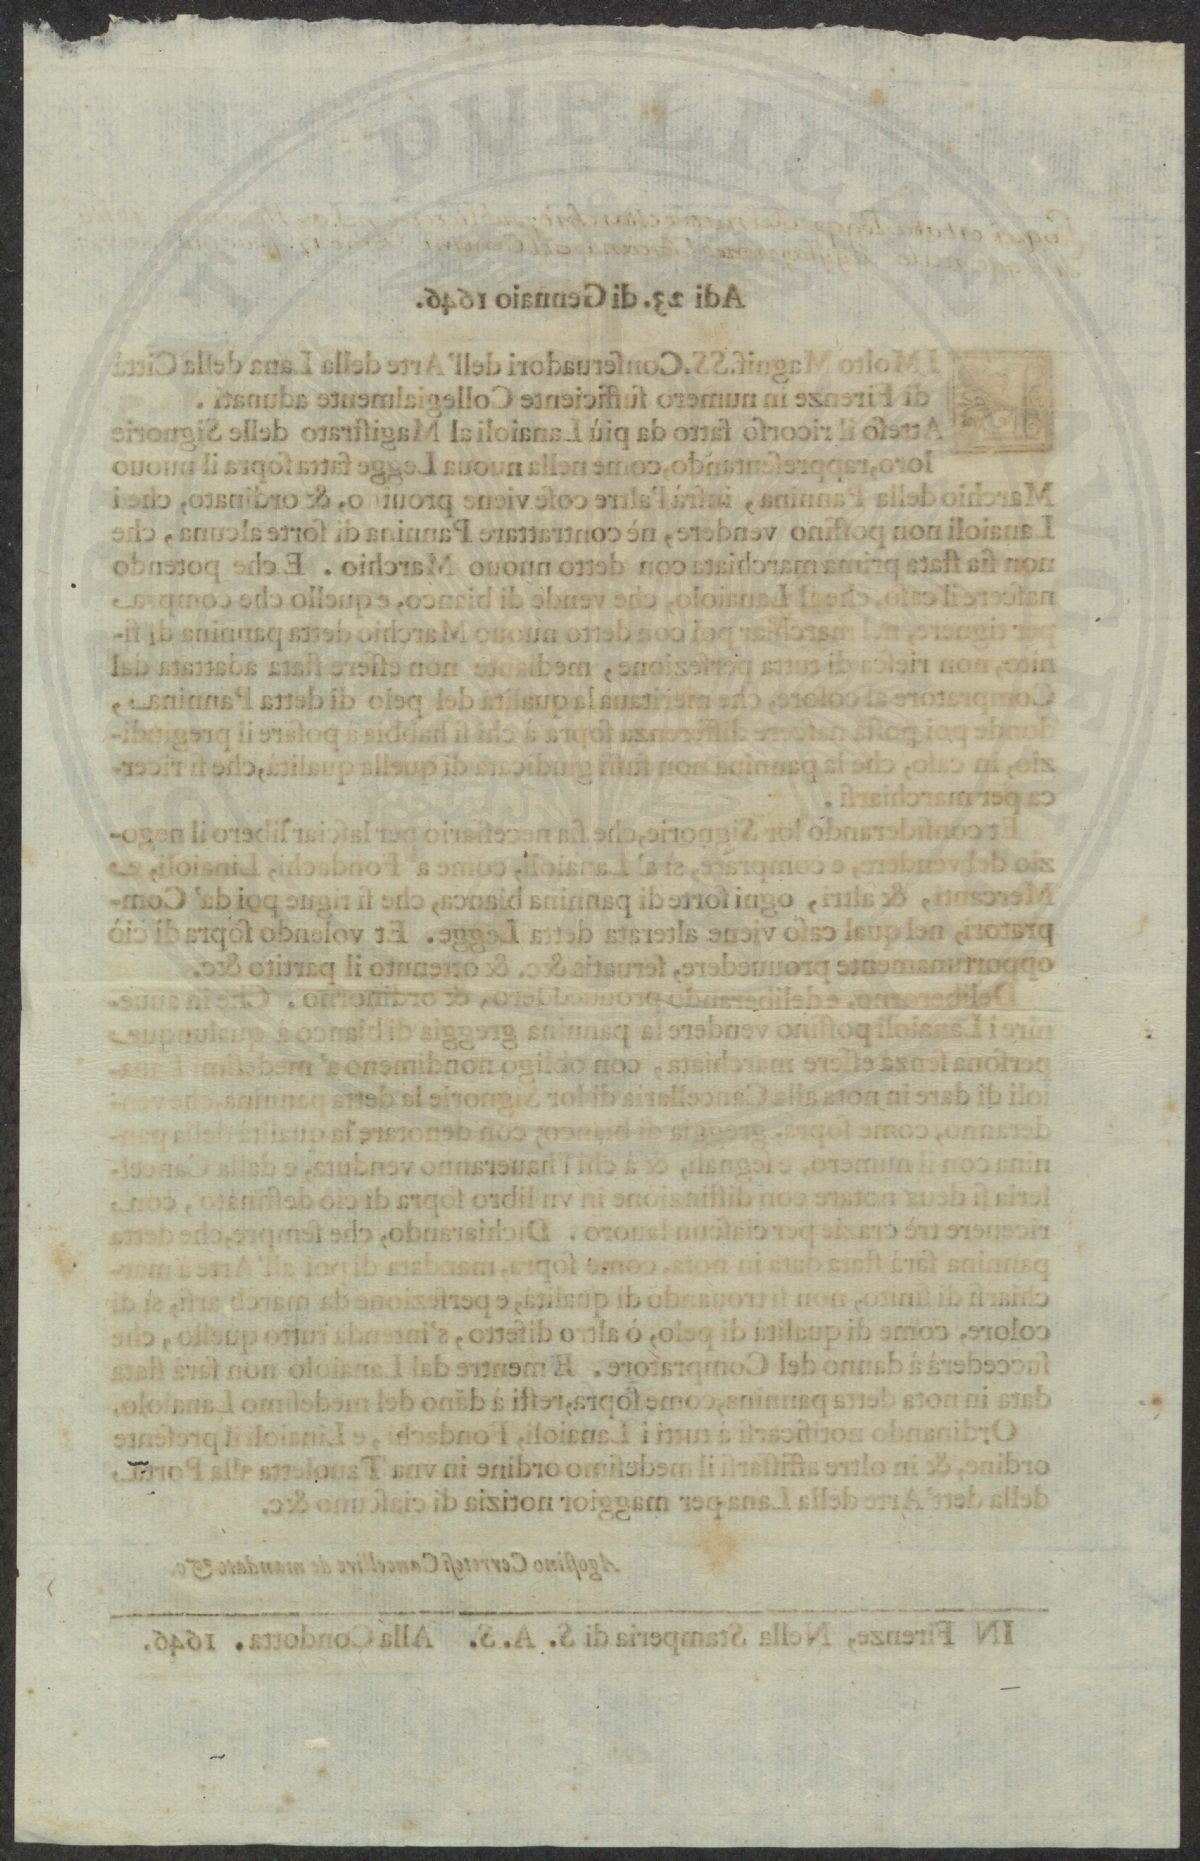 Adi 23. di Gennaio 1646.
I Molto Magnif. SS. Conſeruadori dell'Arte della Lana della Città
di Firenze in numero ſufficiente Collegialmente adunati.
Atteſo il ricorſo fatto da più Lanaioli al Magiſtrato delle Signorie
loro, rappreſentando, come nella nuoua Legge fatta ſopra il nuouo
Marchio della Pannina, infrà l'altre coſe viene proui o, & ordinato, che i
Lanaioli non poſſino vendere, nè contrattare Pannina di ſorte alcuna, che
non ſia ſtata prima marchiata con detto nuouo Marchio. E che potendo
naſcere il caſo, che il Lanaiolo, che vende di bianco, e quello che compra
per tignere, nel marchiar poi con detto nuouo Marchio detta pannina di fi-
nito, non rieſca di tutta perfezione, mediante non eſſere ſtata adattata dal
Compratore al colore, che meritaua la qualità del pelo di detta Pannina,
donde poi poſſa naſcere differenza ſopra à chi ſi habbia à poſare il pregiudi-
zio, in caſo, che la pannina non fuſſi giudicata di quella qualità, che ſi ricer-
ca per marchiarſi.
Et conſiderando lor Signorie, che ſia neceſſario per laſciar libero il nego-
zio del vendere, e comprare, sì a' Lanaioli, come a Fondachi, Linaioli, e
Mercanti, & altri, ogni ſorte di pannina bianca, che ſi tigne poi da' Com-
pratori, nel qual caſo viene alterata detta Legge. Et volendo ſopra di ciò
opportunamente prouuedere, ſeruatis &c. & ottenuto il partito &c.
Deliberorno, e deliberando prouueddero, & ordinorno. Che in auue-
nire i Lanaioli poſſino vendere la pannina greggia di bianco à qualunque
perſona ſenza eſſere marchiata, con obligo nondimeno a' medeſimi Lana-
ioli di dare in nota alla Cancellaria di lor Signorie la detta pannina, che ven-
deranno, come ſopra, greggia di bianco, con denotare la qualità della pan-
nina con il numero, e ſegnali, & à chi l'haueranno venduta, e dalla Cancel-
leria ſi deua notare con diſtinzione in vn libro ſopra di ciò deſtinato, con
riceuere trè crazie per ciaſcun lauoro. Dichiarando, che ſempre, che detta
pannina ſarà ſtata data in nota, come ſopra, mandata di poi all'Arte à mar-
chiarſi di finito, non ſi trouando di qualità, e perfezione da marchiarſi, sì di
colore, come di qualità di pelo, ò altro difetto, s'intenda tutto quello, che
ſuccederà à danno del Compratore. E mentre dal Lanaiolo non ſarà ſtata
data in nota detta pannina, come ſopra, reſti à dãno del medeſimo Lanaiolo.
Ordinando notificarſi à tutti i Lanaioli, Fondachi, e Linaioli il preſente
ordine, & in oltre affiſſarſi il medeſimo ordine in vna Tauoletta alla Porta
della dett'Arte della Lana per maggior notizia di ciaſcuno &c.
Agoſtino Cerreteſi Cancelliere de mandato &c.
IN Firenze, Nella Stamperia di S. A. S. Alla Condotta. 1646.